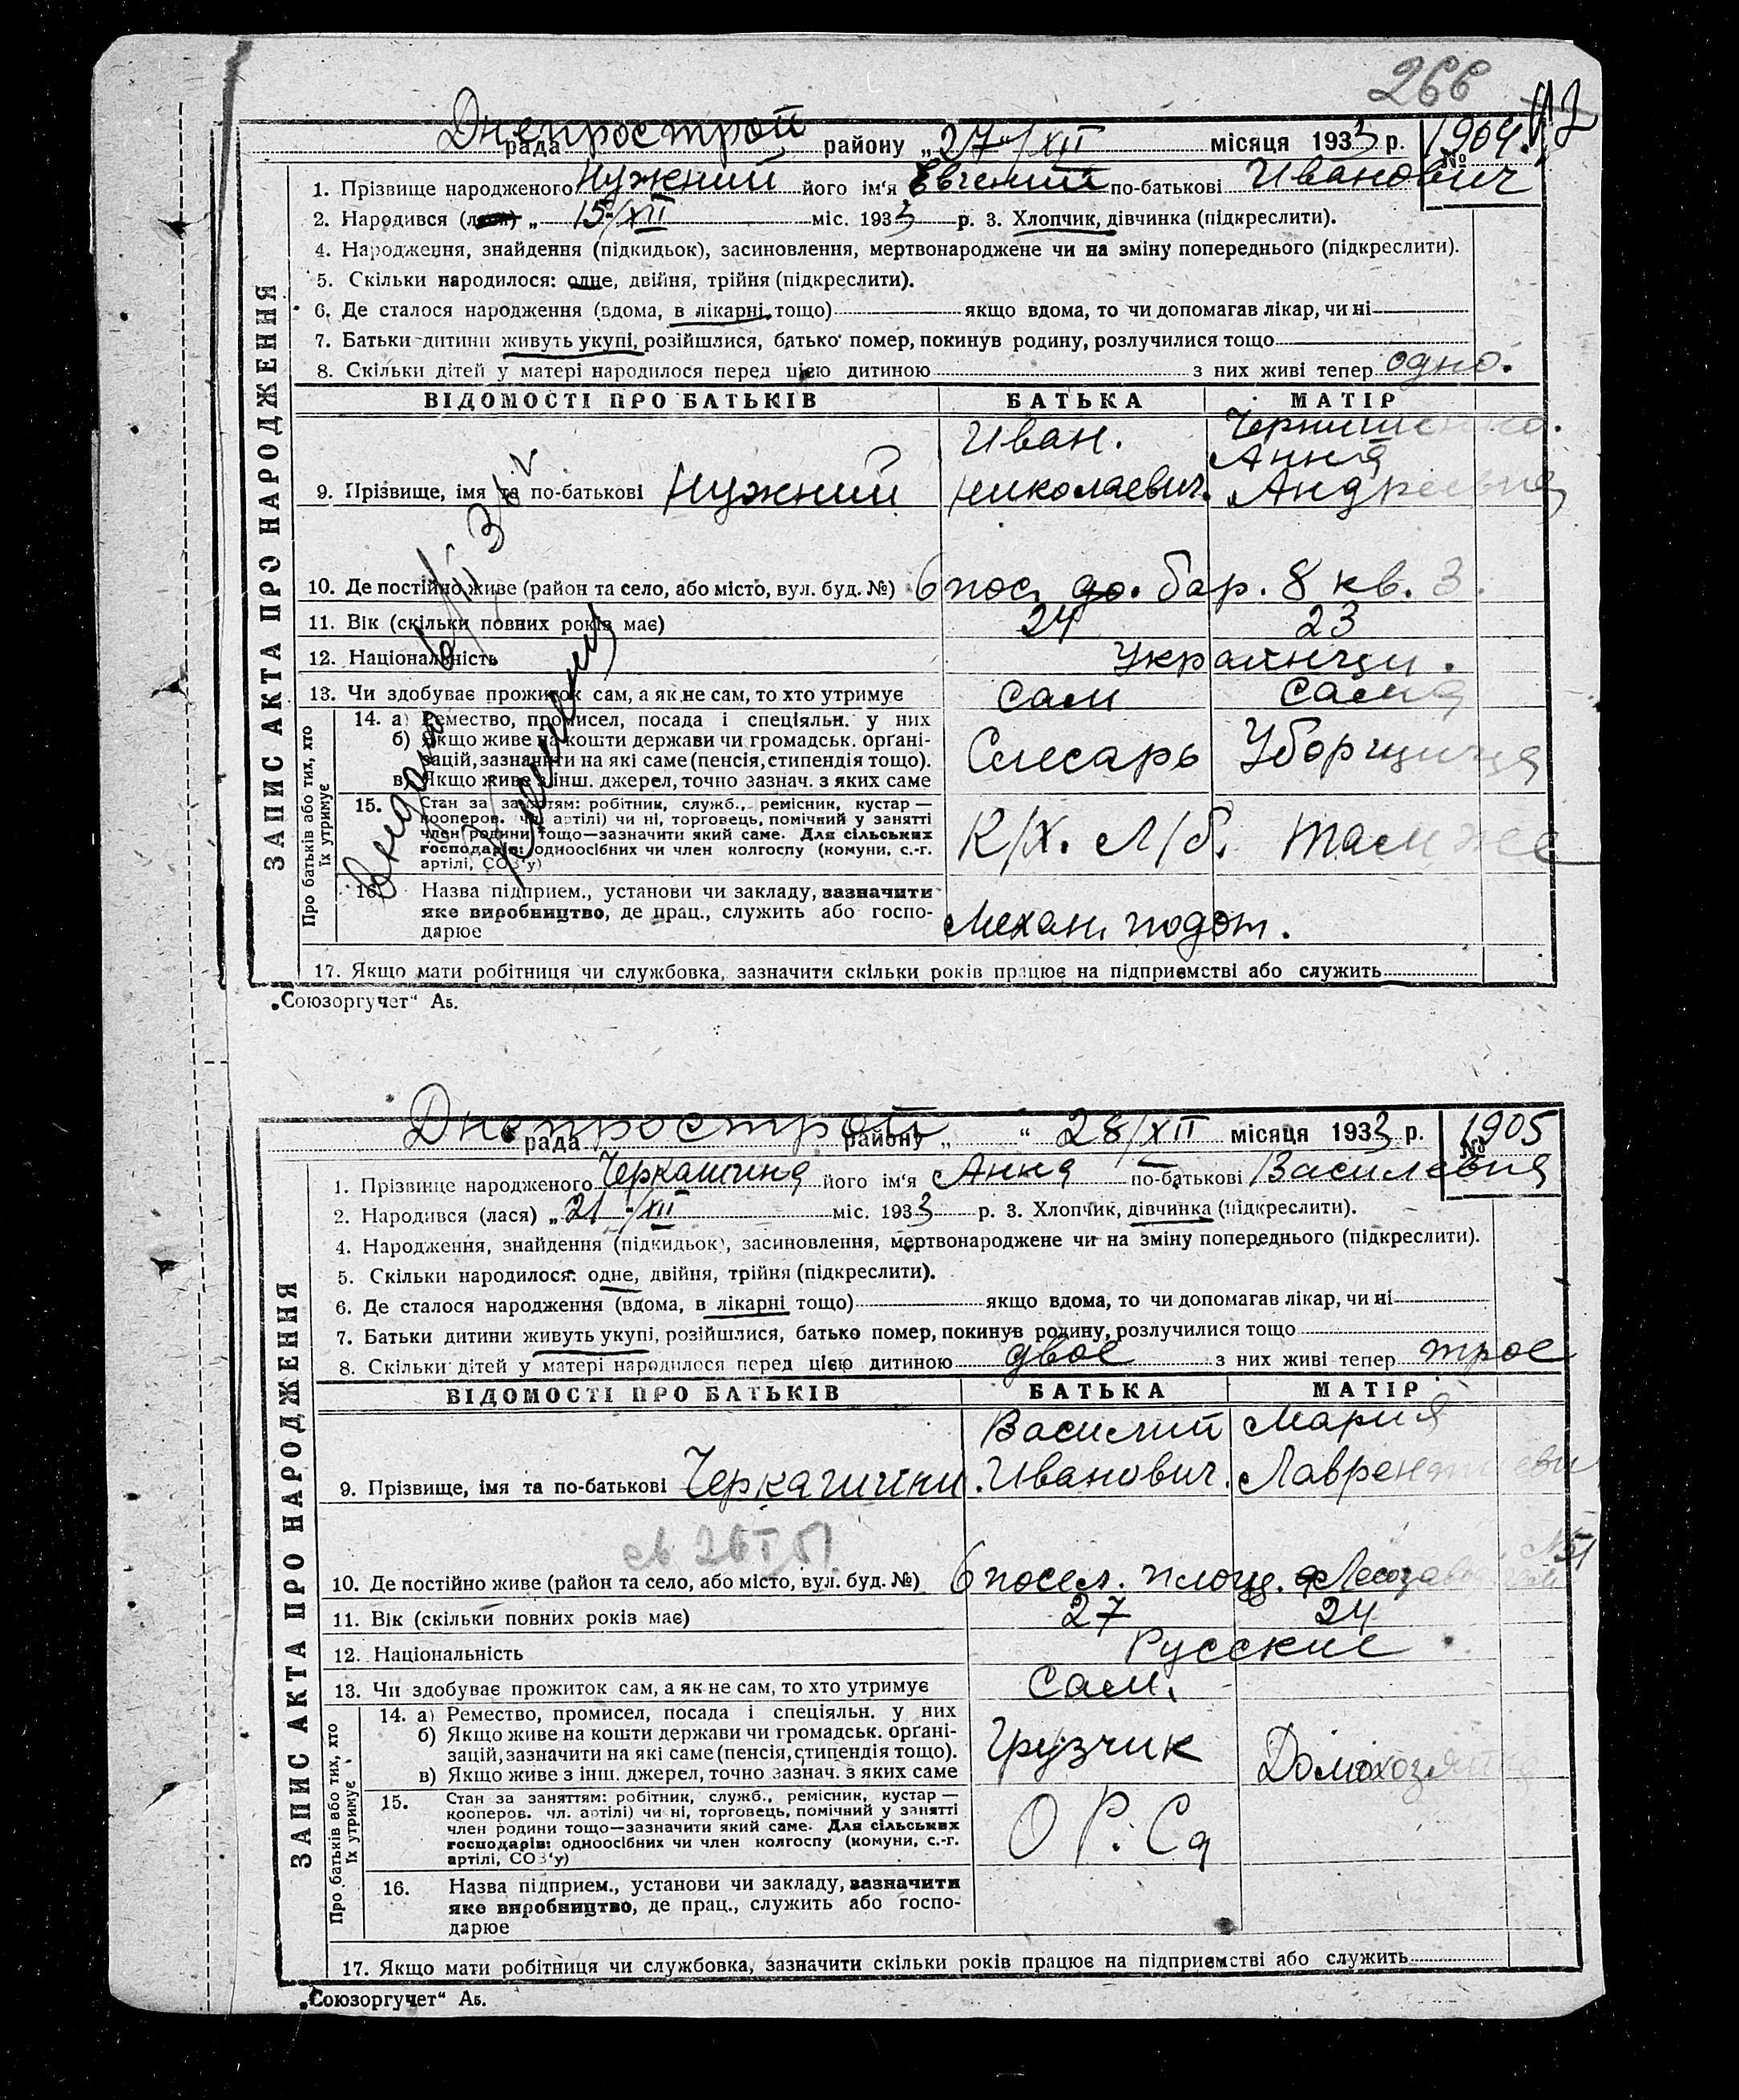 266
Днепрострой
рада району „27"/XII місяця 1933 р. № 1904
1. Прізвище народженого Нужний його ім'я Евгений по-батькові Иванович
2. Народився (лася) „ 15/XII міс. 1933 р. 3. Хлопчик, дівчинка (підкреслити).
4. Народження, знайдення (підкидьок), засиновлення, мертвонароджене чи на зміну попереднього (підкреслити).
5. Скільки народилося: одне, двійня, трійня (підкреслити).
6. Де сталося народження (вдома, в лікарні, тощо) якщо вдома, то чи допомагав лікар, чи ні
7. Батьки дитини живуть укупі, розійшлися, батько помер, покинув родину, розлучилися тощо
8. Скільки дітей у матері народилося перед цією дитиною з них живі тепер одно.
ЗАПИС АКТА ПРО НАРОДЖЕННЯ
ВІДОМОСТІ ПРО БАТЬКІВ БАТЬКА МАТІР
Иван.
Анна
9. Прізвище, імя та по-батькові Нужний Николаевич. Андреевна
10. Де постійно живе (район та село, або місто, вул. буд. №) 6 пос. бар. 8 кв. 3.
11. Вік (скільки повних років має) 24 23
12. Національність Украинци.
13. Чи здобуває прожиток сам, а як не сам, то хто утримує сам сама
Про батьків або тих, хто
їх утримує
14. а) Ремество, промисел, посада і спеціяльн. у них
б) Якщо живе на кошти держави чи громадськ. орґані-
зацій, зазначити на які саме (пенсія, стипендія тощо).
в) Якщо живе з інш. джерел, точно зазнач. з яких саме
Слесарь Уборщица
15. Стан за заняттям: робітник, служб., ремісник, кустар —
кооперов. чл. артілі) чи ні, торговець, помічний у занятті
член родини тощо—зазначити який саме. Для сільських
господарів: одноосібних чи член колгоспу (комуни, с.-г.
артілі, СОЗ'у)
К/Х. Л/б. там же
16. Назва підприєм., установи чи закладу, зазначити
яке виробництво, де прац., служить або госпо-
дарює
Механ. подот.
17. Якщо мати робітниця чи службовка, зазначити скільки років працює на підприємстві або служить
„Союзоргучет" Аб.
Днепрострой
рада району „ " 28/XII місяця 1933 р. № 1905
1. Прізвище народженого Черкашина його ім'я Анна по-батькові Василевна
2. Народився (лася) „ 21/XII міс. 1933 р. 3. Хлопчик, дівчинка (підкреслити).
4. Народження, знайдення (підкидьок), засиновлення, мертвонароджене чи на зміну попереднього (підкреслити).
5. Скільки народилося: одне, двійня, трійня (підкреслити).
6. Де сталося народження (вдома, в лікарні тощо) якщо вдома, то чи допомагав лікар, чи ні
7. Батьки дитини живуть укупі, розійшлися, батько помер, покинув родину, розлучилися тощо
8. Скільки дітей у матері народилося перед цією дитиною двое з них живі тепер трое
ЗАПИС АКТА ПРО НАРОДЖЕННЯ
ВІДОМОСТІ ПРО БАТЬКІВ БАТЬКА МАТІР
Василий Мария
9. Прізвище, імя та по-батькові Черкашини. Иванович. Лаврентиевн
10. Де постійно живе (район та село, або місто, вул. буд. №) 6 посел. площ.
11. Вік (скільки повних років має) 27 24
12. Національність Русские
13. Чи здобуває прожиток сам, а як не сам, то хто утримує сам.
Про батьків або тих, хто
їх утримує
14. а) Ремество, промисел, посада і спеціяльн. у них
б) Якщо живе на кошти держави чи громадськ. орґані-
зацій, зазначити на які саме (пенсія, стипендія тощо).
в) Якщо живе з інш. джерел, точно зазнач. з яких саме
Грузчик Домохозяйка
15. Стан за заняттям: робітник, служб., ремісник, кустар —
кооперов. чл. артілі) чи ні, торговець, помічний у занятті
член родини тощо—зазначити який саме. Для сільських
господарів: одноосібних чи член колгоспу (комуни, с.-г.
артілі, СОЗ'у)
О Р. Са
16. Назва підприєм., установи чи закладу, зазначити
яке виробництво, де прац., служить або госпо-
дарює
17. Якщо мати робітниця чи службовка, зазначити скільки років працює на підприємстві або служить
„Союзоргучет" Аб.